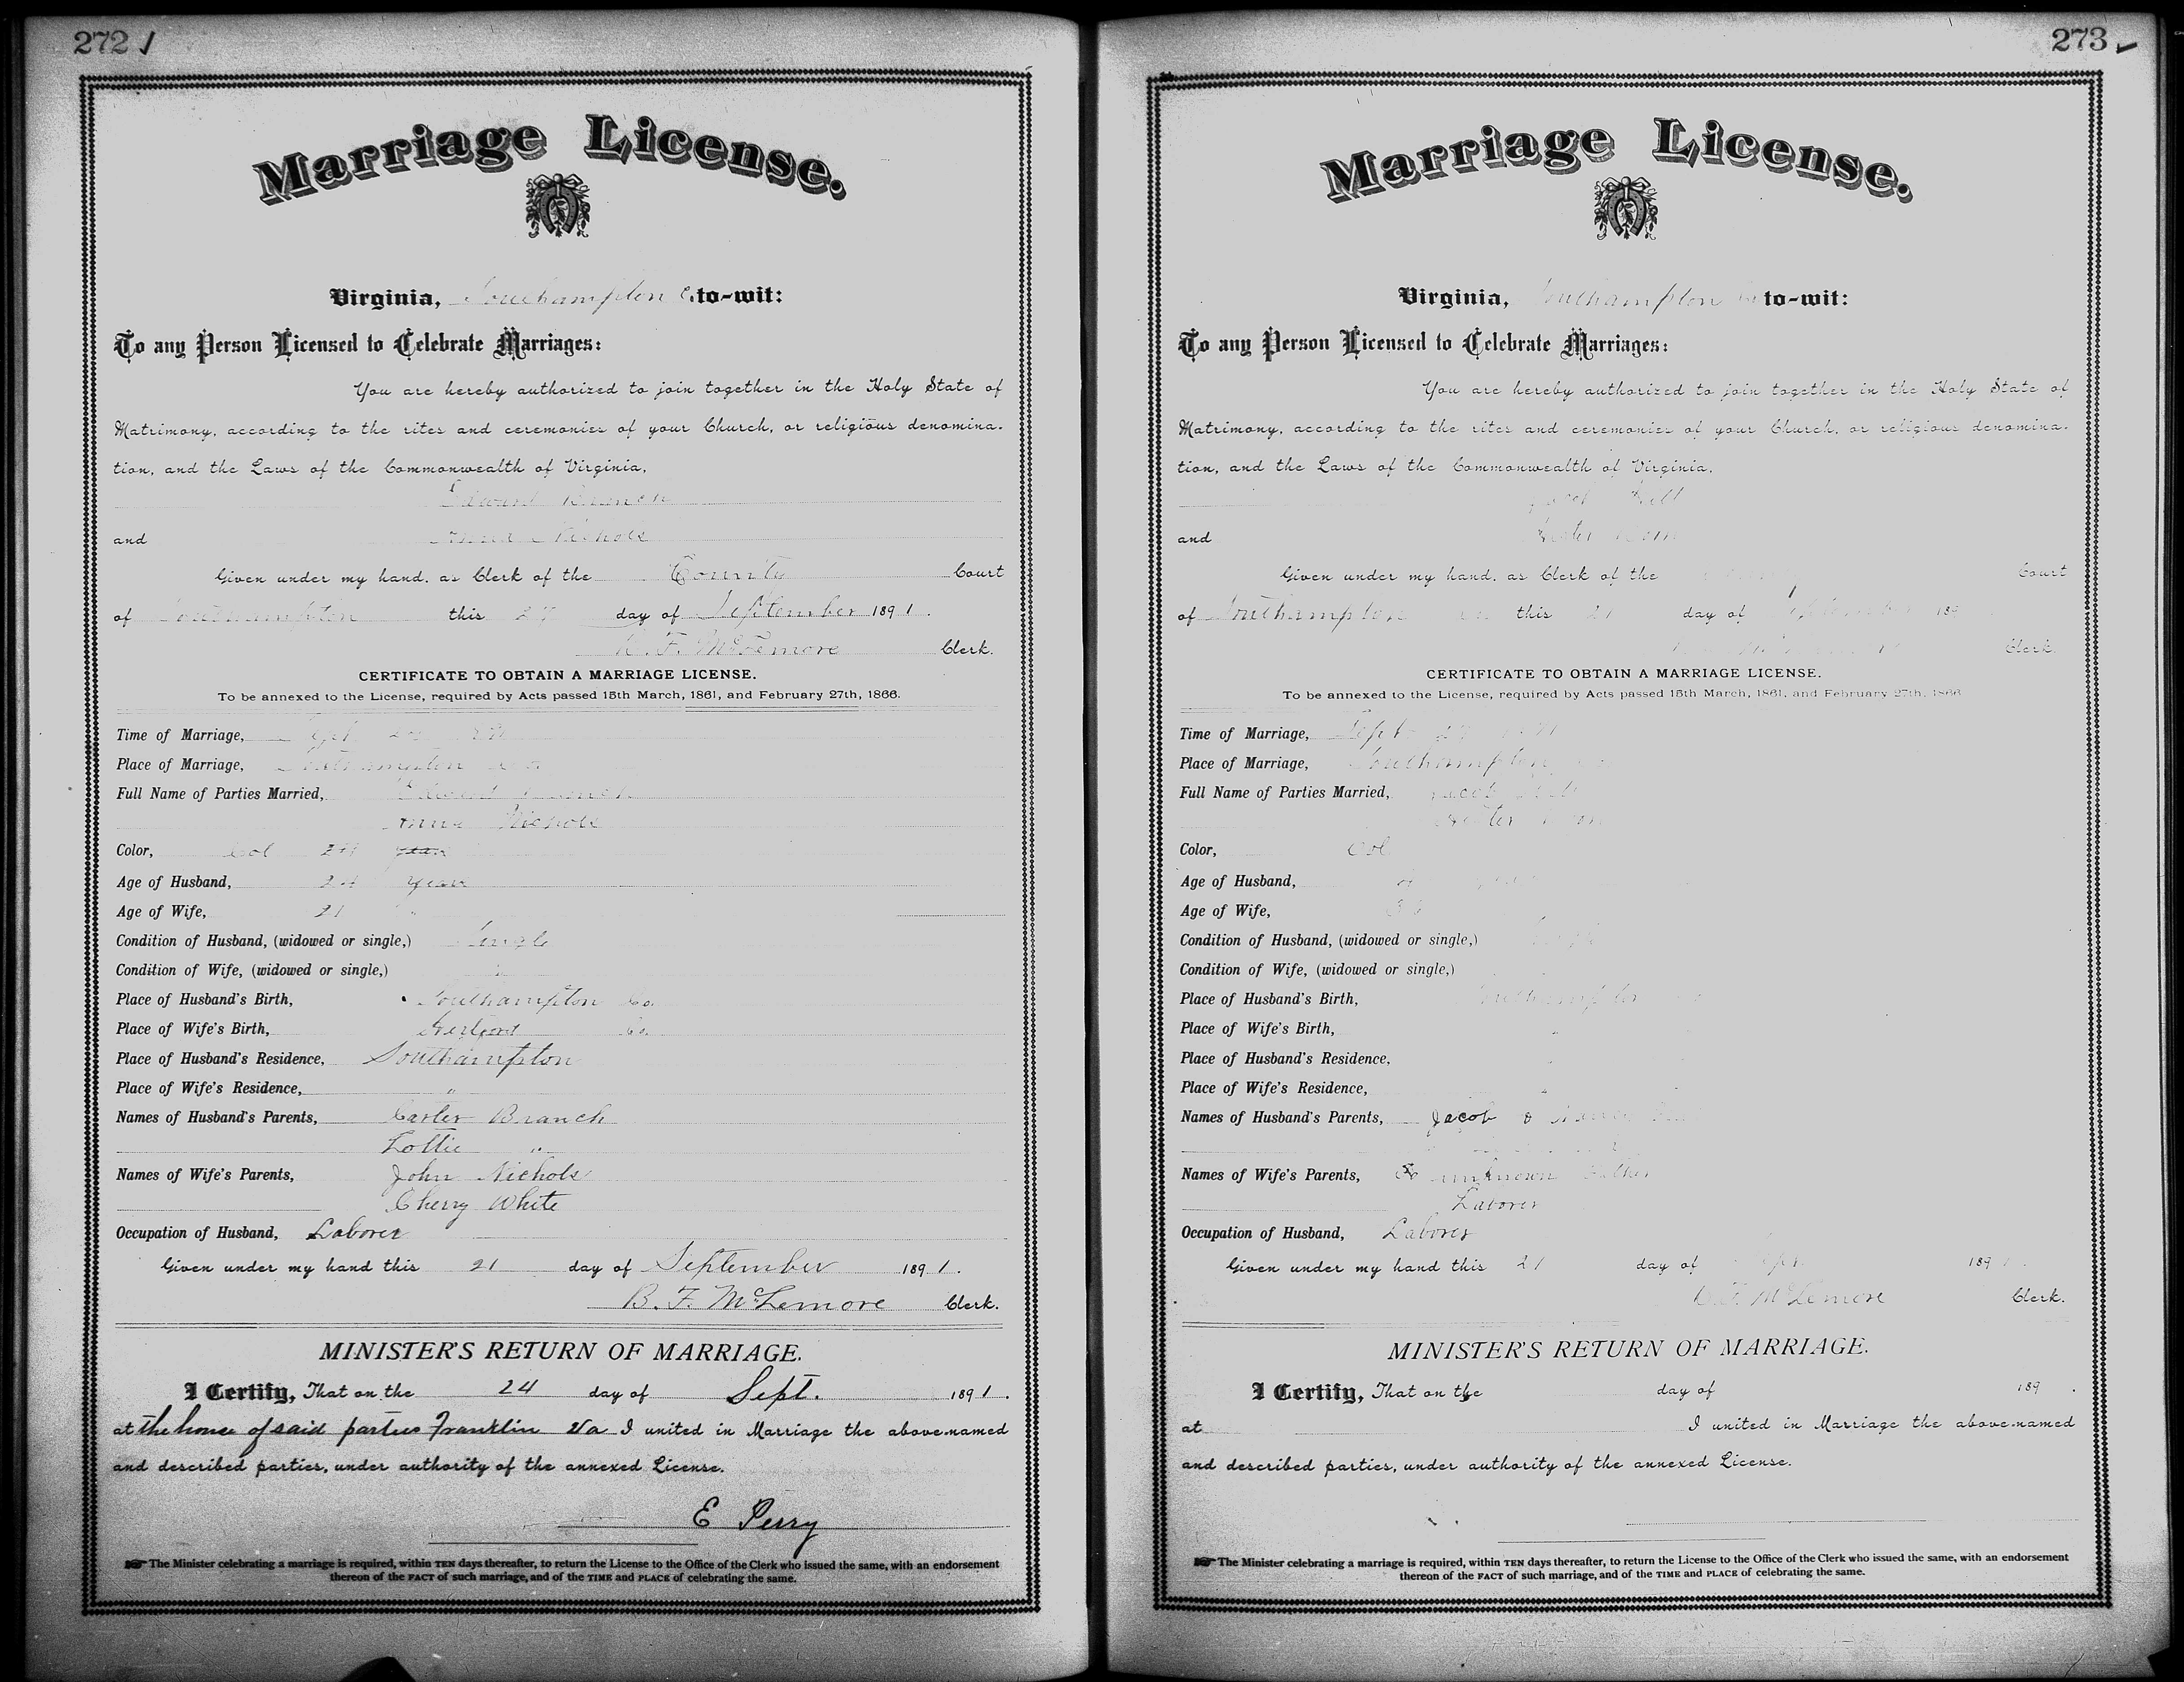 272
Marriage License.
Virginia, Southampton Co to-wit:
To any Person Licensed to Celebrate Marriages:
You are hereby authorized to join together in the Holy State of
Matrimony, according to the rites and ceremonies of your Church, or religious denomina-
tion, and the Laws of the Commonwealth of Virginia,
Edward Branch
and Annie Nichols
Given under my hand, as Clerk of the County Court
of Southampton this day of September 1891.
B. F. McLemore Clerk.
CERTIFICATE TO OBTAIN A MARRIAGE LICENSE.
To be annexed to the License, required by Acts passed 15th March, 1861, and February 27th, 1866.
Time of Marriage,
Place of Marriage, Southampton Co
Full Name of Parties Married, Edward Branch
Annie Nichols
Color, Col 24 year
Age of Husband, 24 year
Age of Wife, 21 "
Condition of Husband, (widowed or single,) Single
Condition of Wife, (widowed or single,) "
Place of Husband's Birth, Southampton Co.
Place of Wife's Birth, Hertford Co.
Place of Husband's Residence, Southampton
Place of Wife's Residence, "
Names of Husband's Parents, Carter Branch
Lottie "
Names of Wife's Parents, John Nichols
Cherry White
Occupation of Husband, Laborer
Given under my hand this 21 day of September 1891.
B. F. McLemore Clerk.
MINISTER'S RETURN OF MARRIAGE.
I Certify, That on the 24 day of Sept. 1891.
at the house of said parties Franklin Va I united in Marriage the above-named
and described parties, under authority of the annexed License.
E Perry
The Minister celebrating a marriage is required, within TEN days thereafter, to return the License to the Office of the Clerk who issued the same, with an endorsement
thereon of the FACT of such marriage, and of the TIME and PLACE of celebrating the same.
273
Marriage License.
Virginia, Southampton Co to-wit:
To any Person Licensed to Celebrate Marriages:
You are hereby authorized to join together in the Holy State of
Matrimony, according to the rites and ceremonies of your Church, or religious denomina-
tion, and the Laws of the Commonwealth of Virginia,
Jacob
and
Given under my hand, as Clerk of the Court
of Southampton this 21 day of September 189
Clerk.
CERTIFICATE TO OBTAIN A MARRIAGE LICENSE.
To be annexed to the License, required by Acts passed 15th March, 1861, and February 27th, 1866
Time of Marriage, Sept
Place of Marriage, Southampton
Full Name of Parties Married, Jacob
Color, Col
Age of Husband,
Age of Wife,
Condition of Husband, (widowed or single,)
Condition of Wife, (widowed or single,)
Place of Husband's Birth, Southampton
Place of Wife's Birth,
Place of Husband's Residence,
Place of Wife's Residence,
Names of Husband's Parents, Jacob &
Names of Wife's Parents, unknown Father
Laborer
Occupation of Husband, Laborer
Given under my hand this 21 day of Sept 1891.
B. F. McLemore Clerk.
MINISTER'S RETURN OF MARRIAGE.
I Certify, That on the day of 189 .
at I united in Marriage the above-named
and described parties, under authority of the annexed License.
The Minister celebrating a marriage is required, within TEN days thereafter, to return the License to the Office of the Clerk who issued the same, with an endorsement
thereon of the FACT of such marriage, and of the TIME and PLACE of celebrating the same.